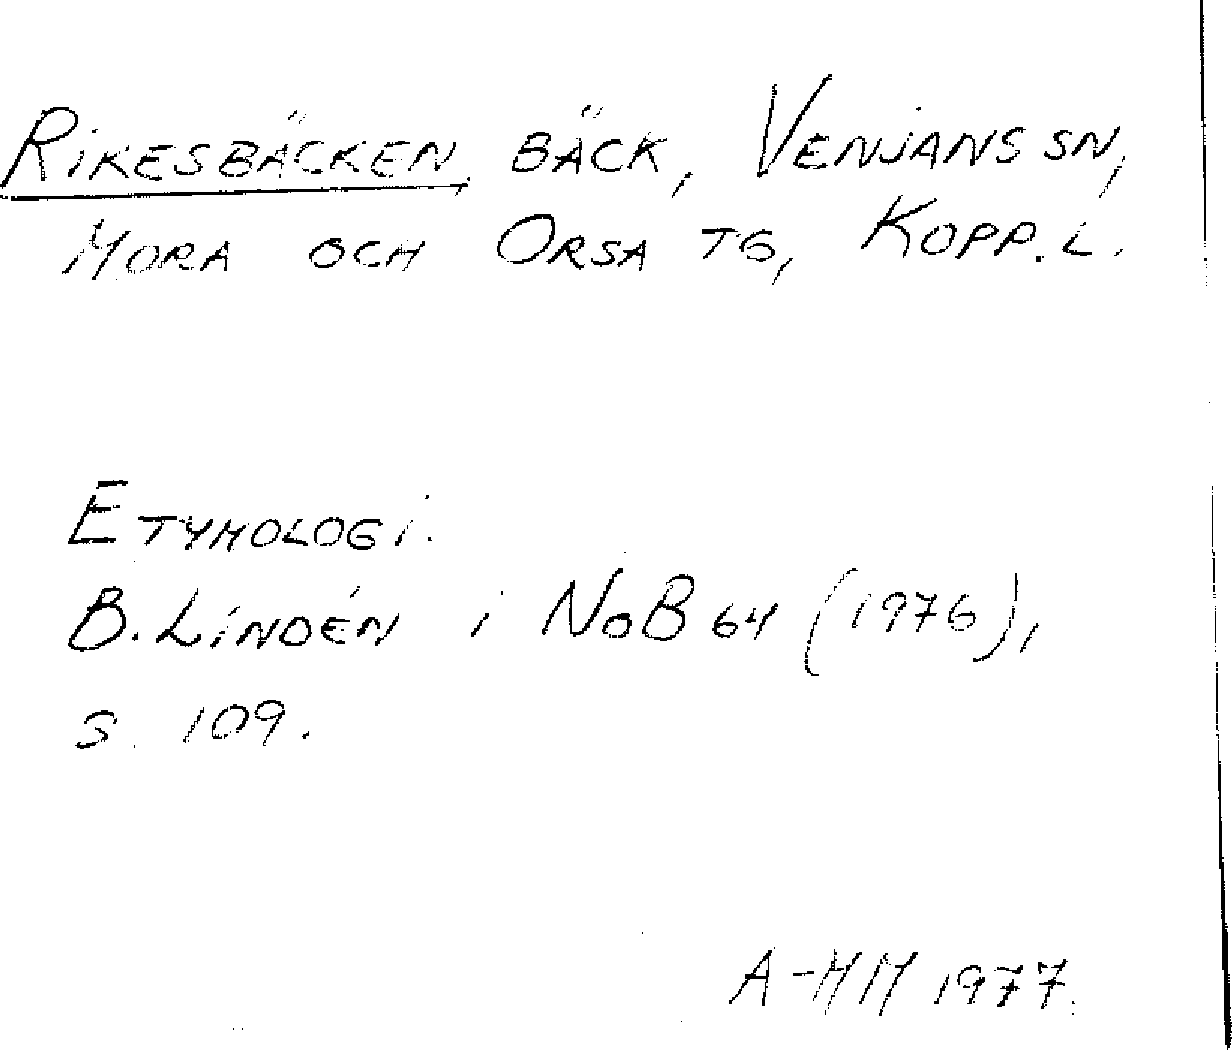 Rikesbäcken, bäck, Venjans sn,
Mora och Orsa tg, Kopp. l.
Etymologi.
B. Lindén i NoB 64 (1976),
s. 109.
A-MM 1977.